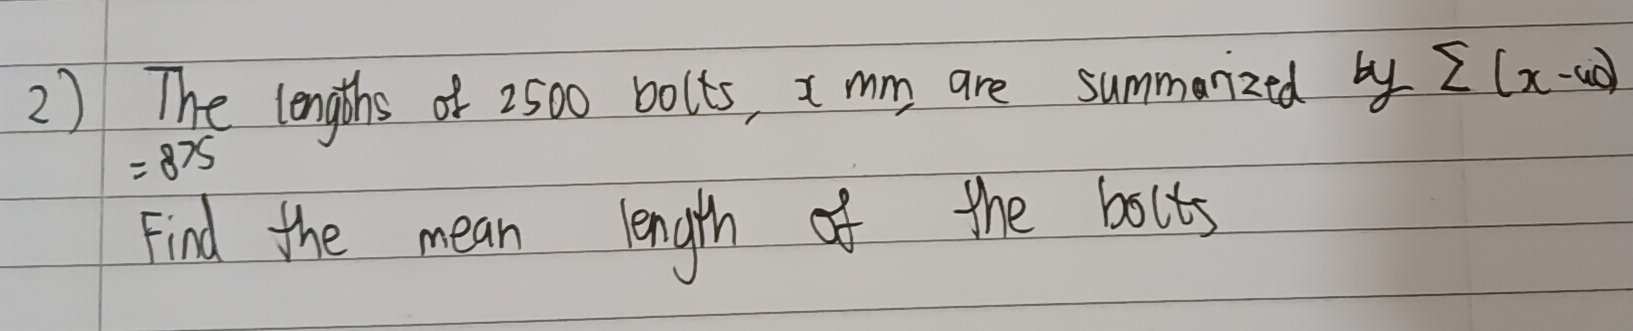 2) The lengths of 2500 bolts, x mm, are summarized by Σ (x-40)
= 875
Find the mean length of the bolts